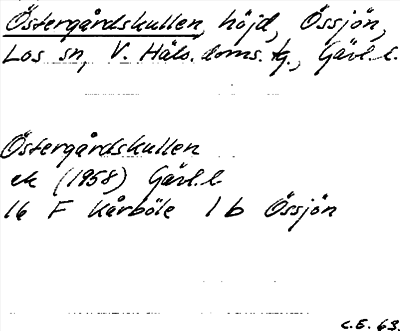 Östergårdskullen, höjd, Össjön,
Los sn, V. Häls. doms. tg., Gävl.l.
Östergårdskullen
ek (1958) Gävl.l.
16 F Kårböle 1 b Össjön
C.E. 63.